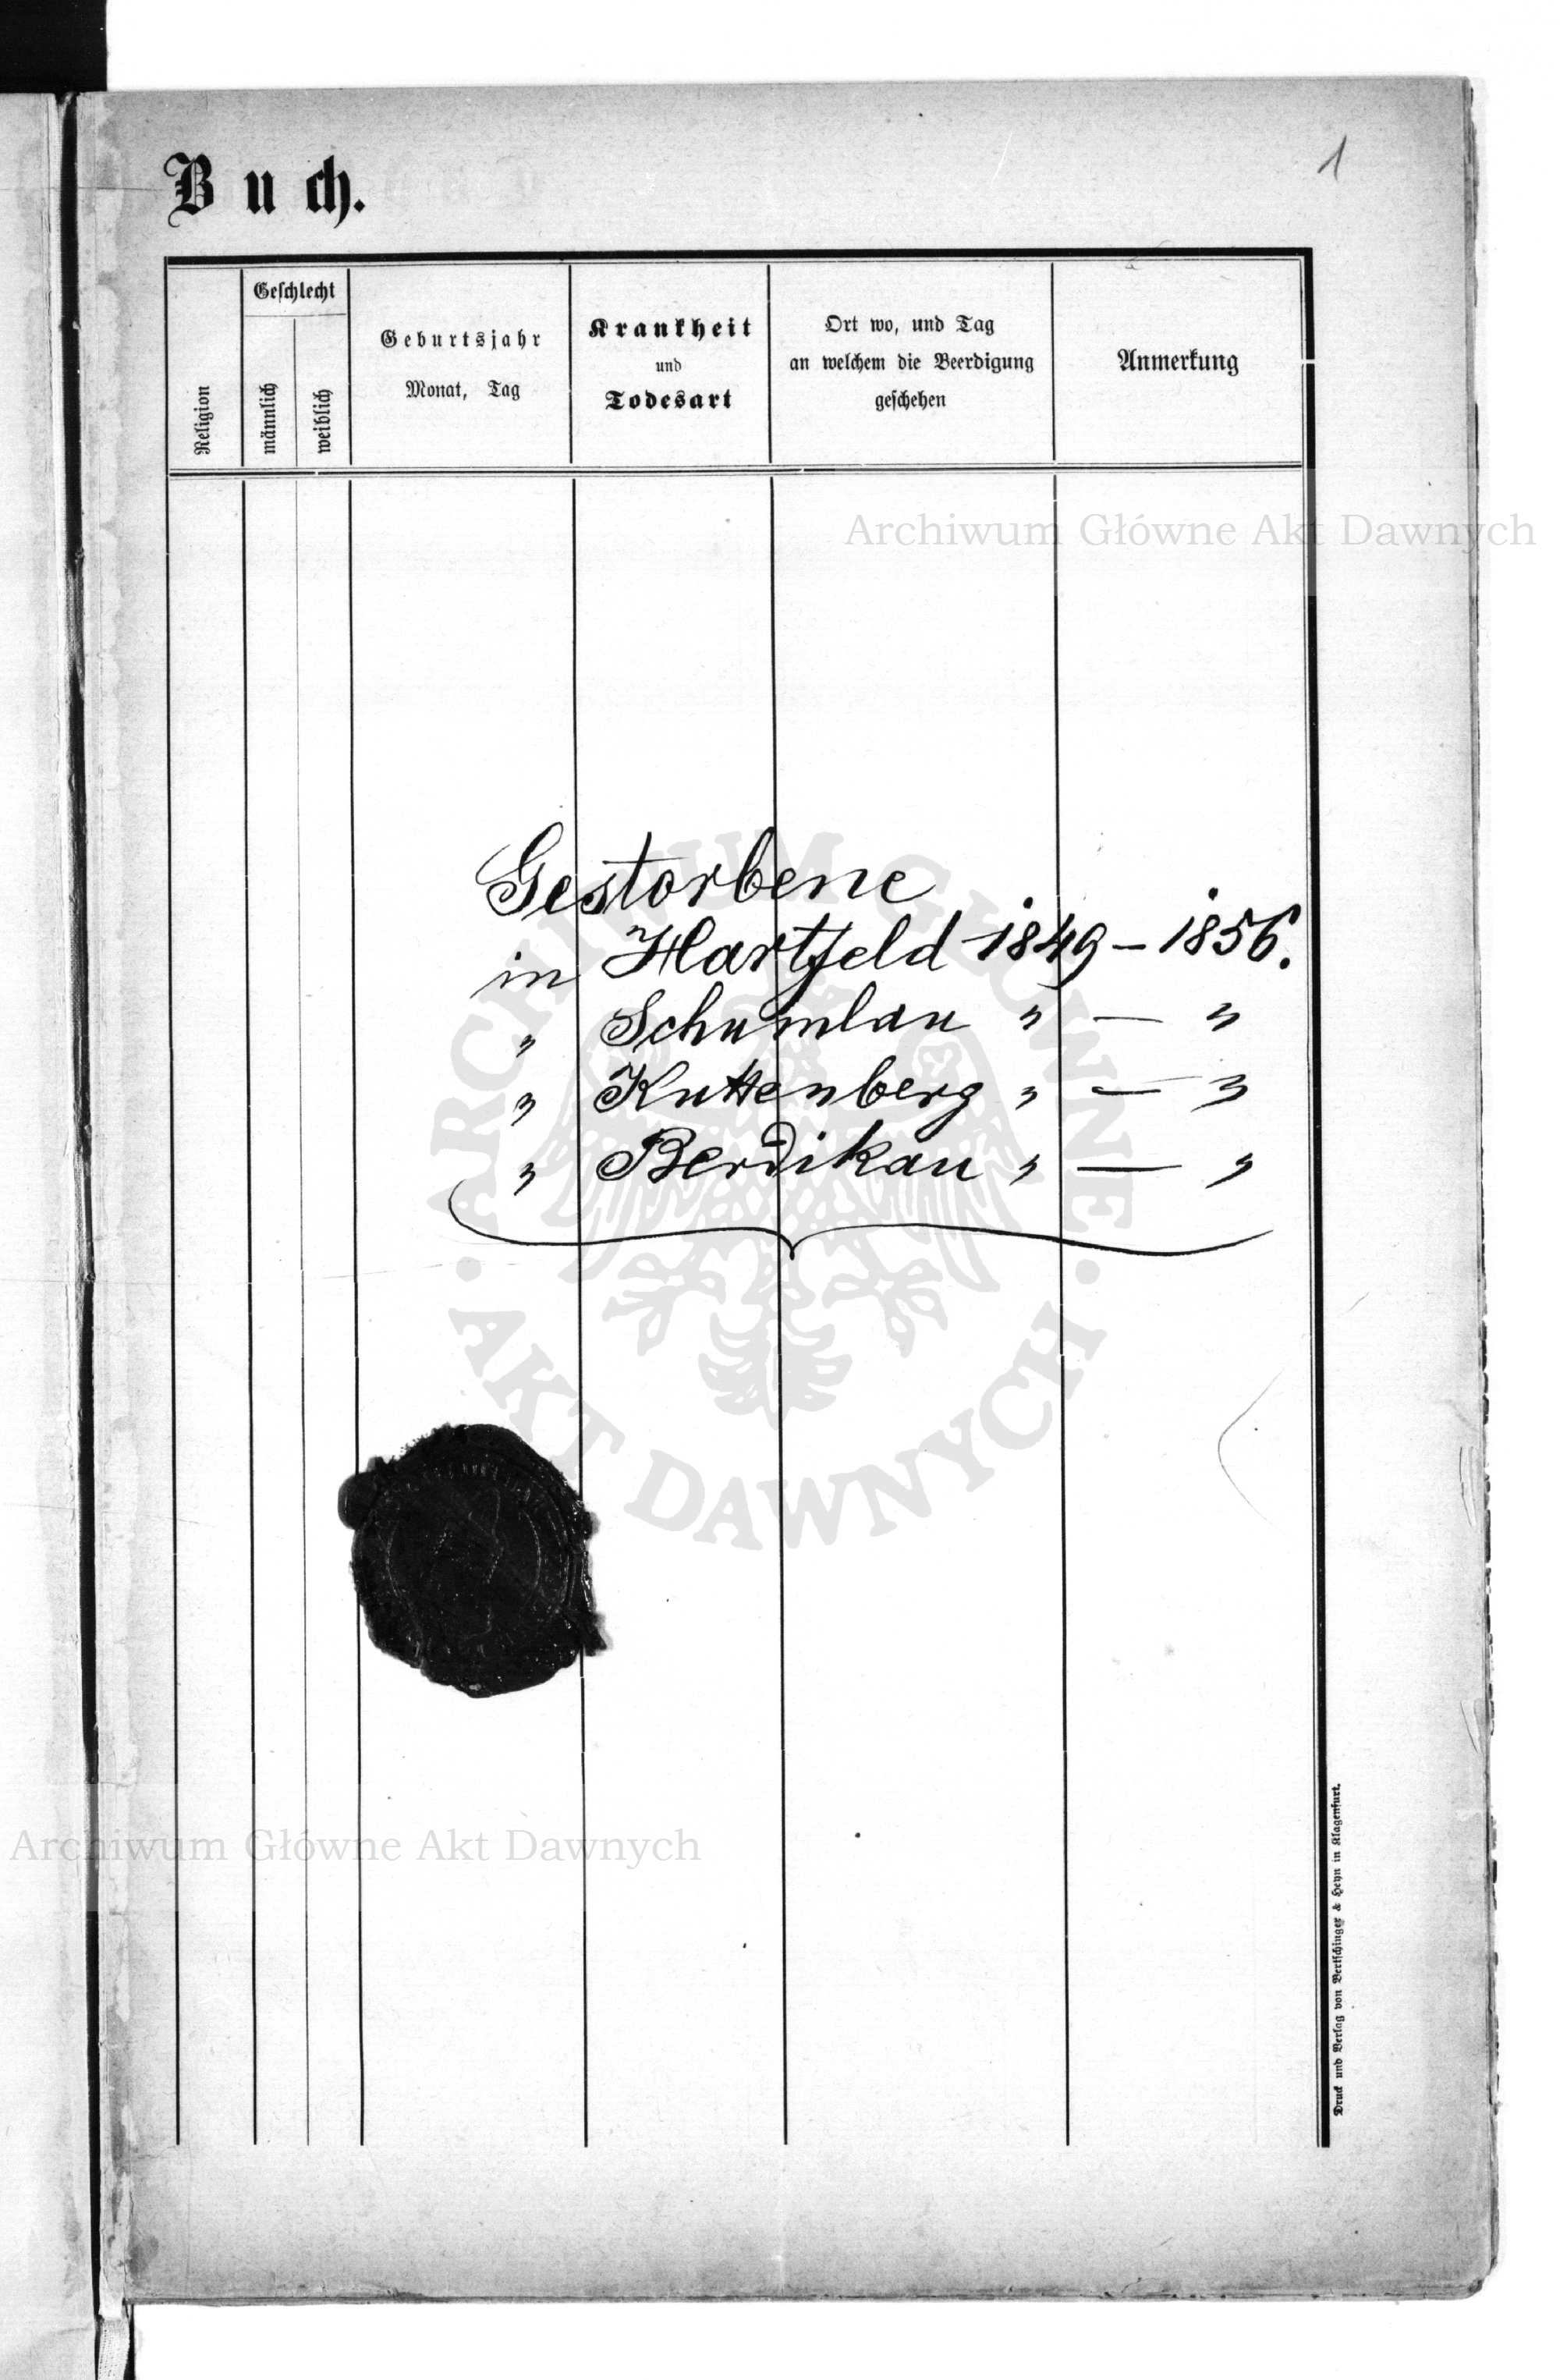 1
Buch.
Religion
Geschlecht
männlich
weiblich
Geburtsjahr
Monat, Tag
Krankheit
und
Todesart
Ort wo, und Tag
an welchem die Beerdigung
geschehen
Anmerkung
Archiwum Główne Akt Dawnych
Gestorbene
in Hartfeld 1849 – 1856.
" Schumlau " — "
" Kuttenberg " — "
" Berdikau " — "
ARCHIWUM GŁÓWNE
AKT DAWNYCH
Archiwum Główne Akt Dawnych
Druck und Verlag von Bertschinger & Heyn in Klagenfurt.